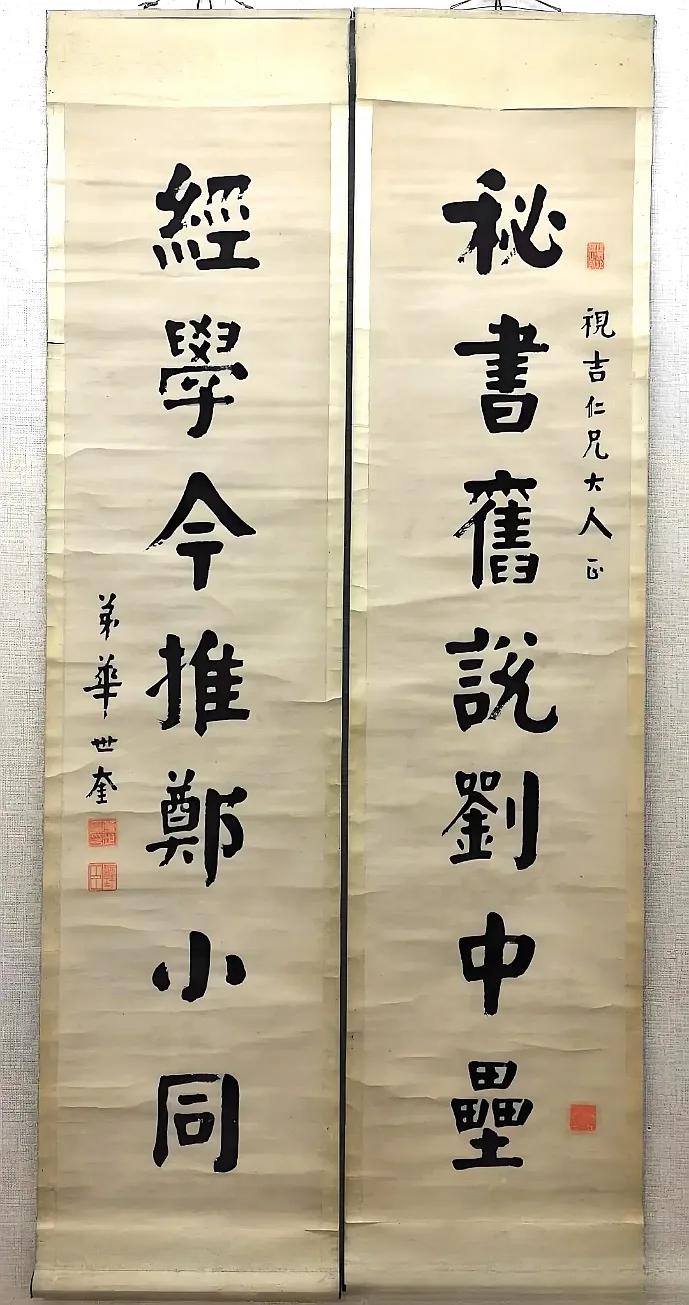 祕書舊說劉中壘
視吉仁兄大人正
經學今推鄭小同
弟華世奎